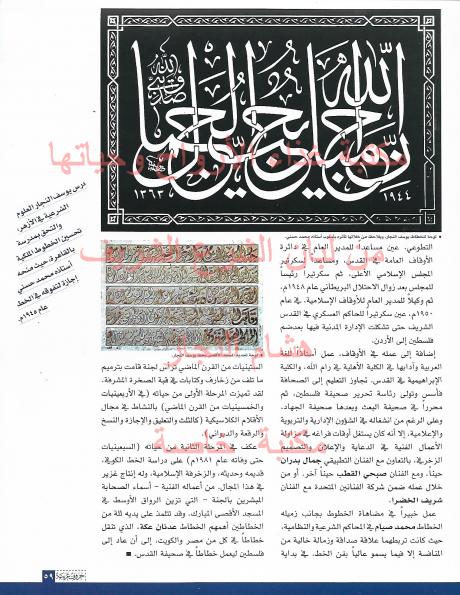 الله جميل يحب الجمال
١٣٦٣
١٩٤٤
لوحة للخطاط يوسف النجار، ويلاحظ من خلالها تأثره بأسلوب أستاذه محمد حسني.
درس يوسف النجار العلوم
الشرعية في الأزهر،
والتحق بمدرسة
تحسين الخطوط الملكية
بالقاهرة، حيث منحه
أستاذه محمد حسني
إجازة لتفوقه في الخط
عام ١٩٤٥م.
التطوعي. عين مساعداً للمدير العام في دائرة
الأوقاف العامة في القدس، ومساعداً لسكرتير
المجلس الإسلامي الأعلى، ثم سكرتيراً رئيساً
للمجلس بعد زوال الاحتلال البريطاني عام ١٩٤٨م،
ثم وكيلاً للمدير العام للأوقاف الإسلامية. في عام
١٩٥٠م، عين سكرتيراً للحاكم العسكري في القدس
الشريف حتى تشكلت الإدارة المدنية فيها بعد ضم
فلسطين إلى الأردن.
إضافة إلى عمله في الأوقاف، عمل أستاذاً للغة
العربية وآدابها في الكلية الأهلية في رام الله، والكلية
الإبراهيمية في القدس. تجاوز التعليم إلى الصحافة
فأسس وتولى رئاسة تحرير صحيفة فلسطين، ثم
محرراً في صحيفة البعث وبعدها صحيفة الجهاد.
وعلى الرغم من انشغاله في الشؤون الإدارية والتربوية
والإعلامية، إلا أنه كان يستغل أوقات فراغه في مزاولة
الأعمال الفنية في الدعاية والإعلان والتصميم
الزخرفي، بالتعاون مع الفنان التطبيقي جمال بدران
حيناً، ومع الفنان صبحي القطب حيناً آخر، أو من
خلال عمله ضمن شركة الفنانين المتحدة مع الفنان
شريف الخضرا.
عمل خبيراً في مضاهاة الخطوط بجانب زميله
الخطاط محمد صيام في المحاكم الشرعية والنظامية،
حيث كانت تربطهما علاقة صداقة وزمالة خالية من
المنافسة إلا فيما يسمو عالياً بفن الخط. في بداية
الستينيات من القرن الماضي ترأس لجنة قامت بترميم
ما تلف من زخارف وكتابات في قبة الصخرة المشرفة.
لقد تميزت المرحلة الأولى من حياته (في الأربعينيات
والخمسينيات من القرن الماضي) بالنشاط في مجال
الأقلام الكلاسيكية (كالثلث والتعليق والإجازة والنسخ
والرقعة والديواني).
عكف في المرحلة الثانية من حياته (السبعينيات
حتى وفاته عام ١٩٨١م) على دراسة الخط الكوفي،
قديمه وحديثه، والزخرفة الإسلامية، وله إنتاج غزير
في هذا المجال. من أعماله الفنية - أسماء الصحابة
المبشرين بالجنة - التي تزين الرواق الأوسط في
المسجد الأقصى المبارك، وقد تتلمذ على يديه ثلة من
الخطاطين أهمهم الخطاط عدنان عكة، الذي تنقل
خطاطاً في كل من مصر والكويت، إلى أن عاد إلى
فلسطين ليعمل خطاطاً في صحيفة القدس. ■
مكتبة غذاء الأرواح وحياتها
هشام النجار
مكتبة
٥٩